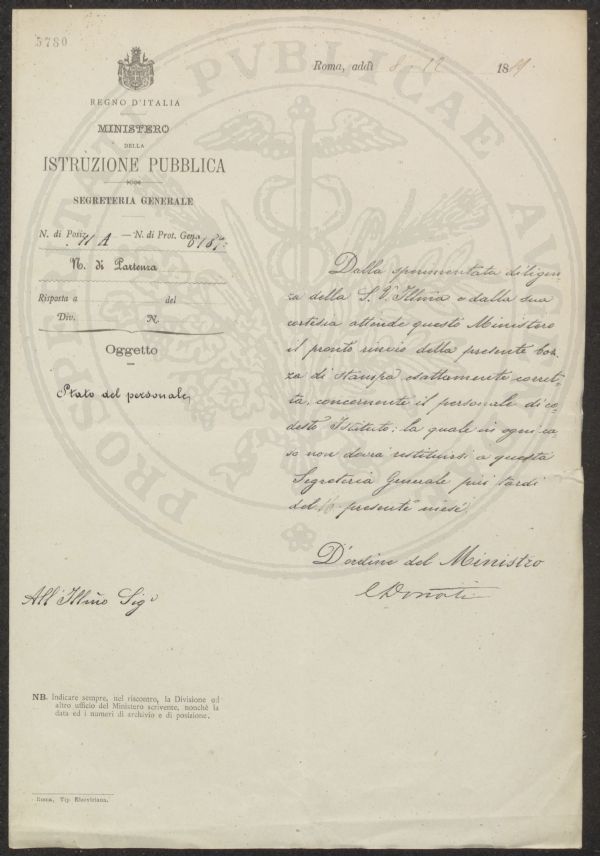 5780
REGNO D'ITALIA
MINISTERO
DELLA
ISTRUZIONE PUBBLICA
SEGRETERIA GENERALE
Roma, addì 8 - 12 1881.
N. di Posiz. 11 A — N. di Prot. Gen.
N. di Partenza
Risposta a del
Div. N.
Oggetto
Stato del personale
Dalla sperimentata diligen
za della S. V. Illma e dalla sua
cortesia attende questo Ministero
il pronto rinvio della presente boz
za di stampa, esattamente corret
ta, concernente il personale di co
desto Istituto; la quale in ogni ca
so non dovrà restituirsi a questa
Segreteria Generale più tardi
del 16 presente mese.
D'ordine del Ministro
CDonati
All'Illmo Sigr
NB. Indicare sempre, nel riscontro, la Divisione od
altro ufficio del Ministero scrivente, nonchè la
data ed i numeri di archivio e di posizione.
Roma, Tip. Elzeviriana.
PROSPERITATI PVBLICAE